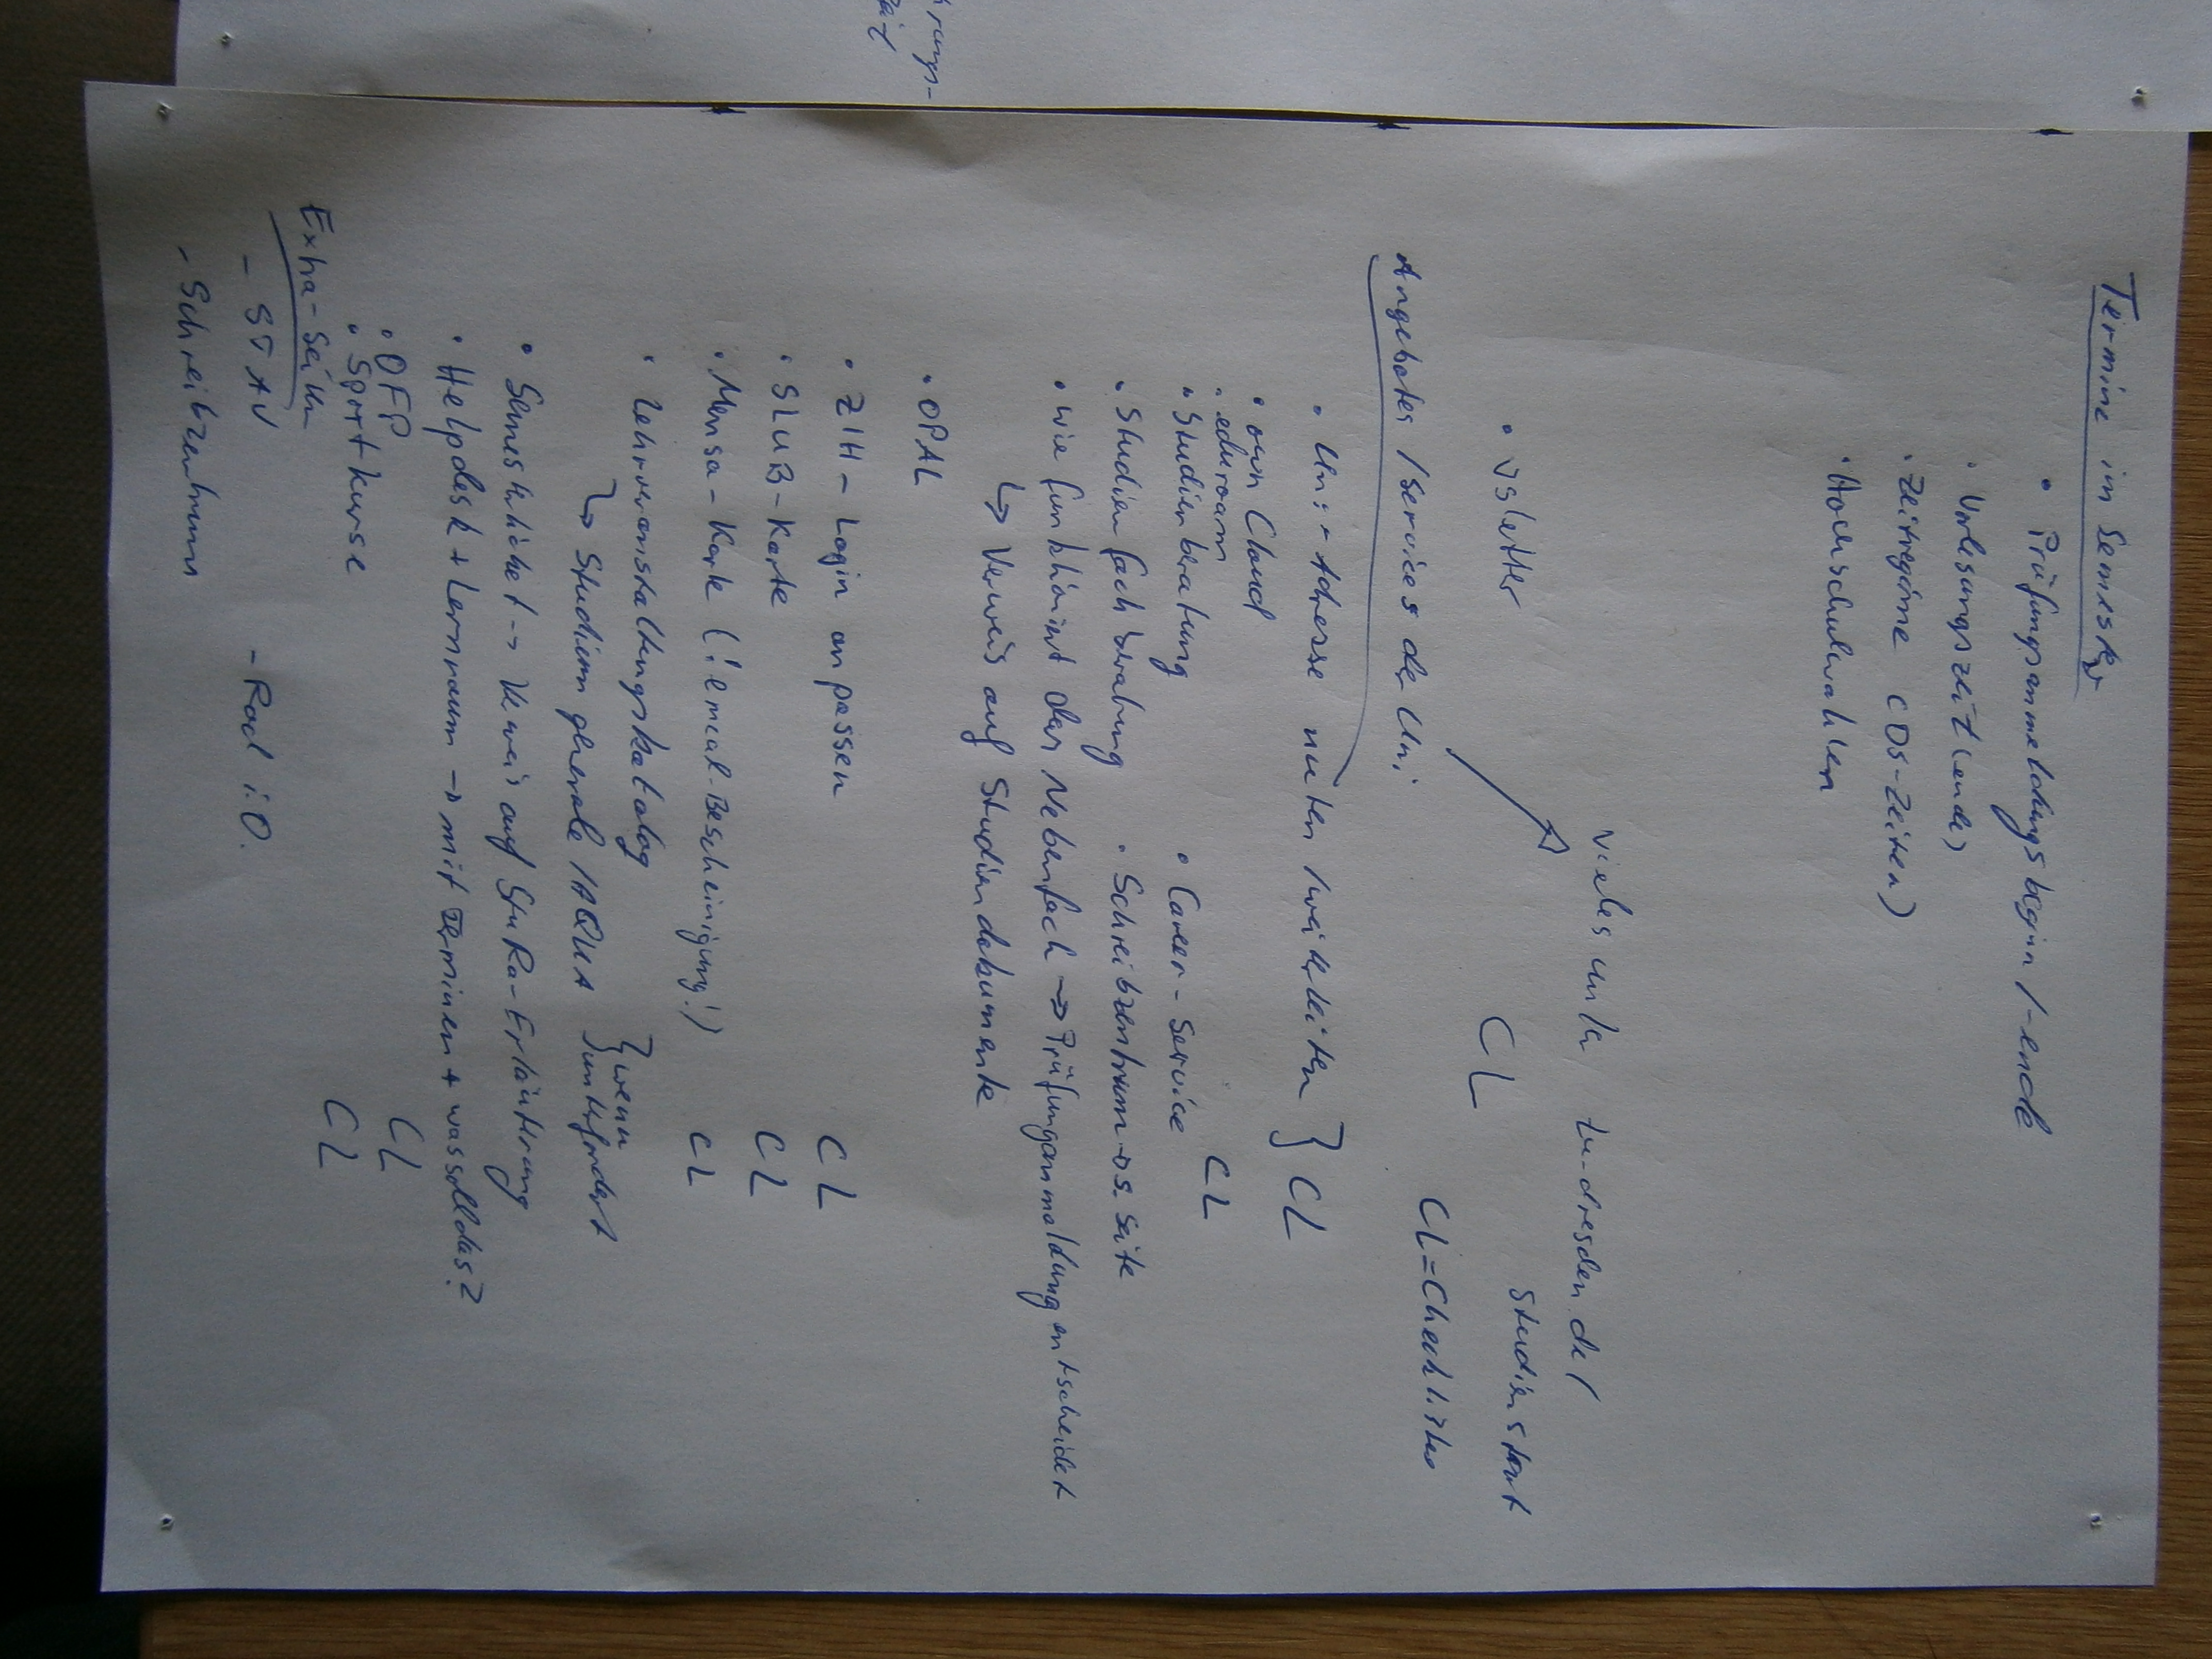 Termine im Semester
• Prüfungsanmeldungsbeginn /-ende
• Vorlesungszeit (ende)
• Zeitregime (DS-Zeiten)
• Hochschulwahlen
vieles unter tu-dresden.de/
studienstart
• sletter
CL
CL = Checkliste
Angebote /Services der Uni
• Uni-Adresse nutzen /weiterleiten } CL
• own Cloud
• eduroam CL
• Studienberatung • Career-Service
• Studienfachberatung • Schreibzentrum → s. Seite
• wie funktioniert das Nebenfach → Prüfunganmeldung entscheidet
↳ Verweis auf Studiendokumente
• OPAL
rungs-
zeit
• ZIH - Login anpassen CL
• SLUB-Karte CL
• Mensa-Karte (! Bescheinigung!) CL
• Lehrveranstaltungskatalog } wenn
↳ Studium generale /AQUA unterfordert
• Semesterticket → Verweis auf StuRa-Erläuterung
• Helpdesk + Lernraum → mit Terminen + was soll das?
• OFP CL
• Sportkurse CL
Extra-Seiten
- STAV - Rad i.O.
- Schreibzentrum